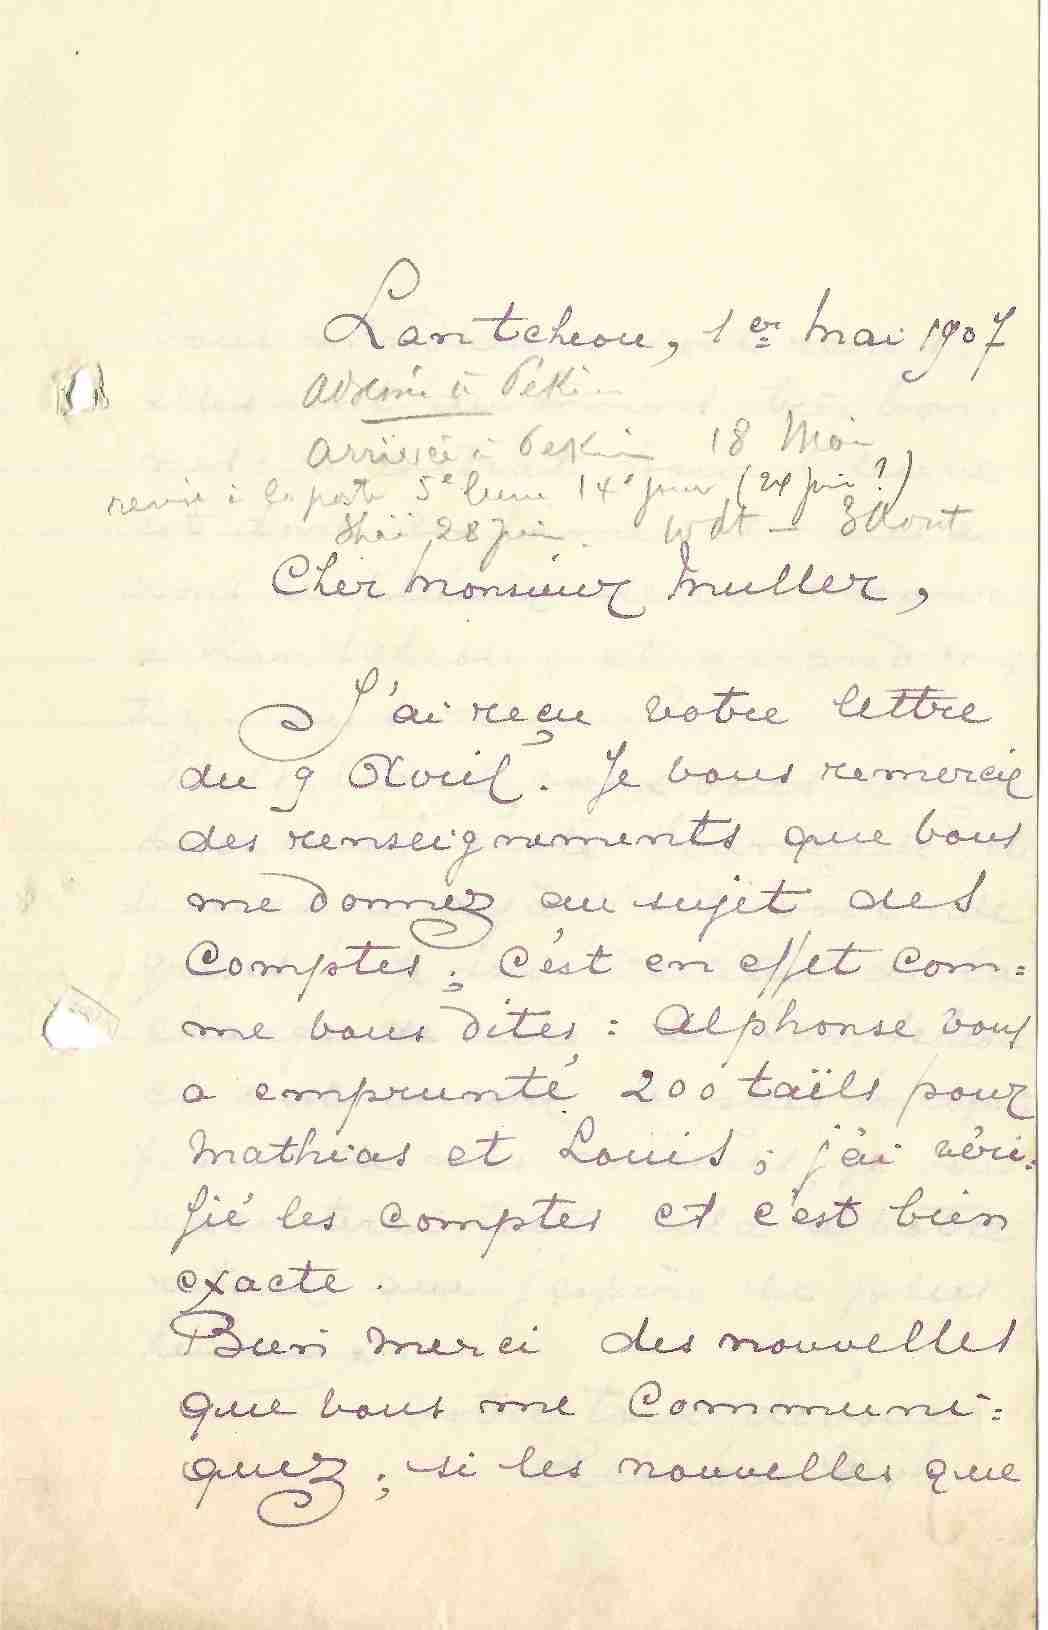 Lantcheou, 1er Mai 1907
adressée à Pékin
arrivée à Pekin 18 Mai
remise à la poste 5e lune 14e jour (24 juin ?)
28 juin. - 3 Aout
Cher Monsieur Muller,
J'ai reçu votre lettre
du 9 Avril. Je vous remercie
des renseignements que vous
me donnez au sujet des
Comptes; c'est en effet com=
me vous dites: Alphonse vous
a emprunté 200 taëls pour
Mathias et Louis; j'ai véri=
fié les comptes et c'est bien
exacte.
Bien merci des nouvelles
que vous me Communi=
quez; si les nouvelles que